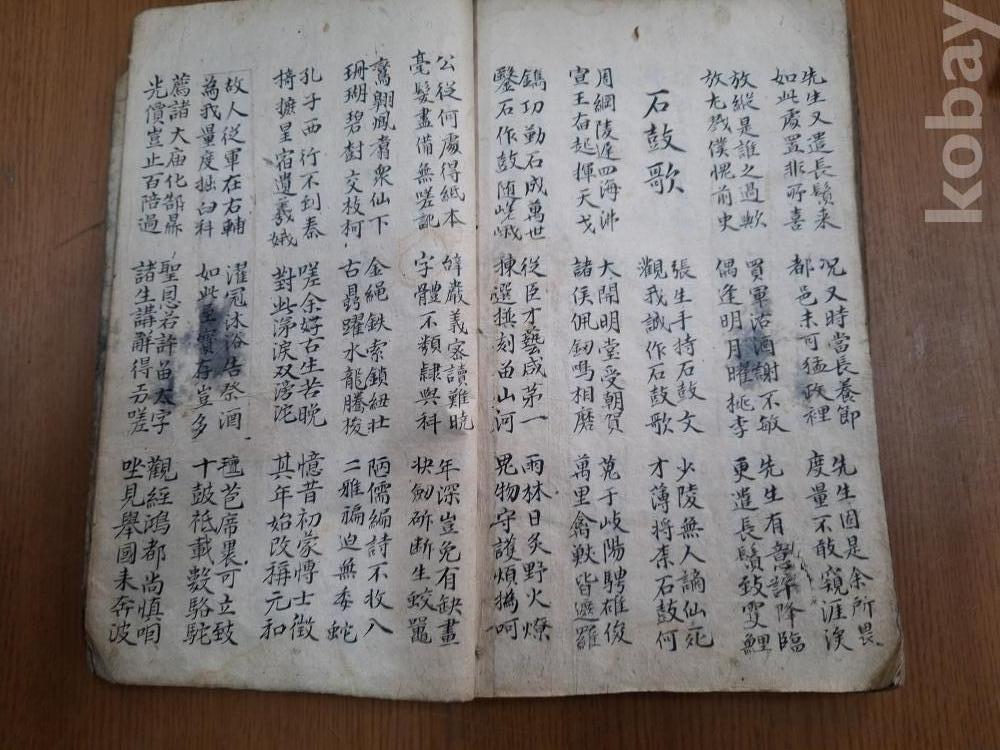 先生又遣長鬚来
如此處置非所喜
况又時當長養節
都邑未可猛政裡
先生固是余所畏
度量不敢窺涯涘
放縱是誰之過歟
放尤戮僕愧前史
買軍沽酒謝不敏
偶逢明月曜桃李
先生有意許降臨
更遣長鬚致雙鯉
石鼓歌
張生手持石鼓文
觀我誠作石鼓歌
少陵無人謫仙死
才薄將柰石鼓何
周綱陵遲四海沸
宣王奋起揮天戈
大開明堂受朝賀
諸侯佩劒鳴相磨
蒐于岐陽騁雄俊
萬里禽獸皆遮羅
鐫功勒石成萬世
鑿石作鼓随嵯峨
從臣才藝咸第一
揀選撰刻留山河
雨林日炙野火燎
鬼物守護煩撝呵
公從何處得紙本
毫髮盡備無嗟訛
辞嚴義密讀難曉
字體不類隸與科
年深豈免有缺畫
快劒斫断生蛟鼉
鸞翱鳳翥衆仙下
珊瑚碧樹交枝柯
金繩鉄索鎖紐壮
古鼎躍水龍騰梭
陋儒編詩不收八
二雅褊迫無委蛇
孔子西行不到秦
掎摭星宿遺羲娥
嗟余好古生苦晚
對此涕淚双滂沱
憶昔初蒙愽士徵
其年始改稱元和
故人從軍在右輔
為我量度掘臼科
濯冠沐浴告祭酒
如此至寶存豈多
氊苞席裹可立致
十鼓祗載數駱駝
薦諸大庙化郜鼎
光價豈止百陪過
聖恩若許留太字
諸生講解得切嗟
觀經鴻都尚慎咽
坐見舉国来奔波